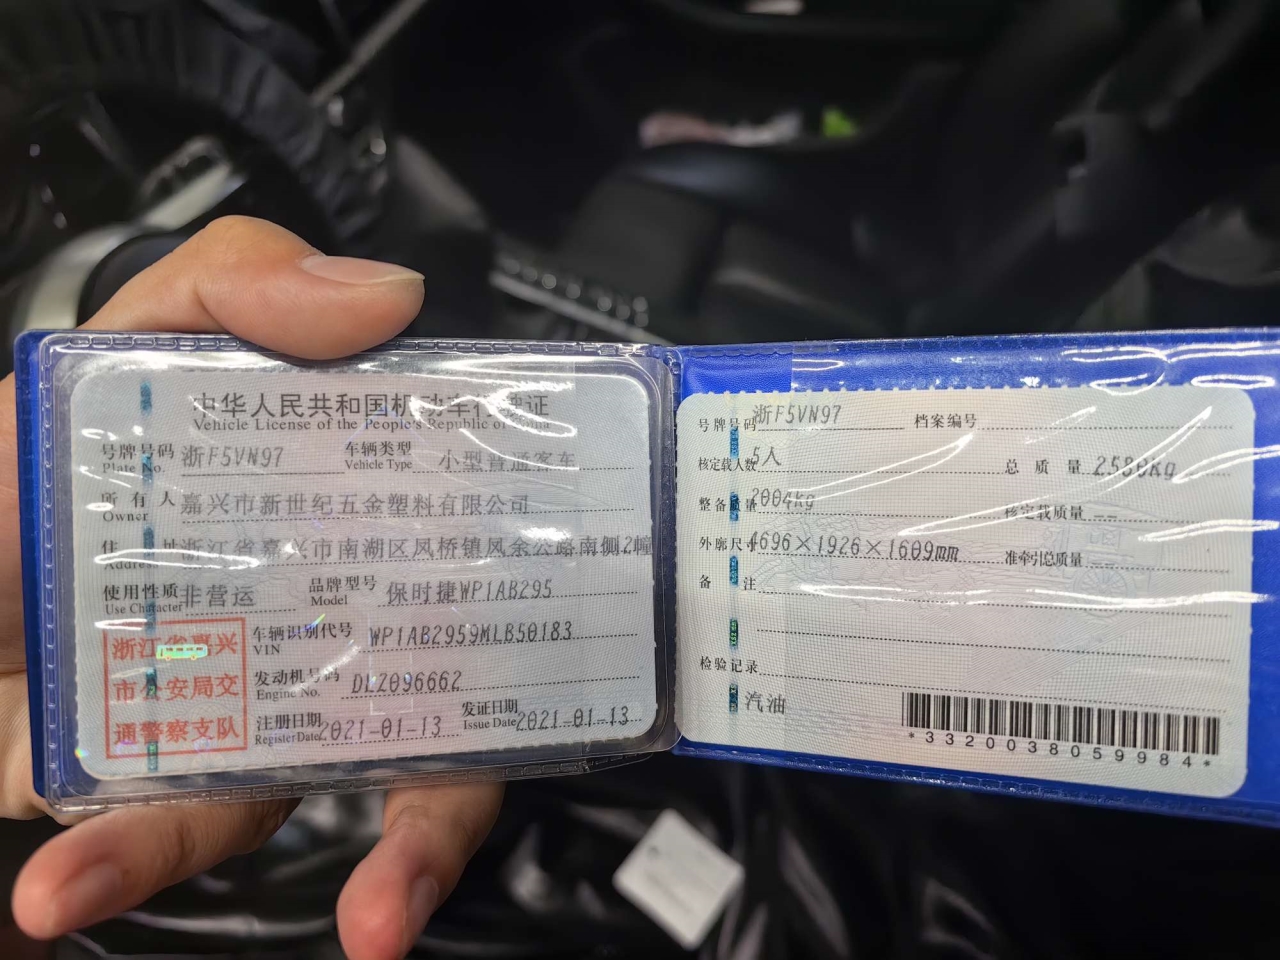 中华人民共和国机动车行驶证
Vehicle License of the People's Republic of China
号牌号码 浙F5VN97 车辆类型 小型普通客车
Plate No. Vehicle Type
所有人 嘉兴市新世纪五金塑料有限公司
Owner
住址 浙江省嘉兴市南湖区凤桥镇凤余公路南侧2幢
Address
使用性质 非营运 品牌型号 保时捷WP1AB295
Use Character Model
浙江省嘉兴
市公安局交
通警察支队
车辆识别代号 WP1AB2959MLB50183
VIN
发动机号码 DLZ096662
Engine No.
注册日期 2021-01-13 发证日期 2021-01-13
Register Date Issue Date
号牌号码 浙F5VN97 档案编号
核定载人数 5人 总质量 2580kg
整备质量 2004kg 核定载质量 --
外廓尺寸 4696×1926×1609mm 准牵引总质量 --
备注
检验记录
汽油
*3320038059984*